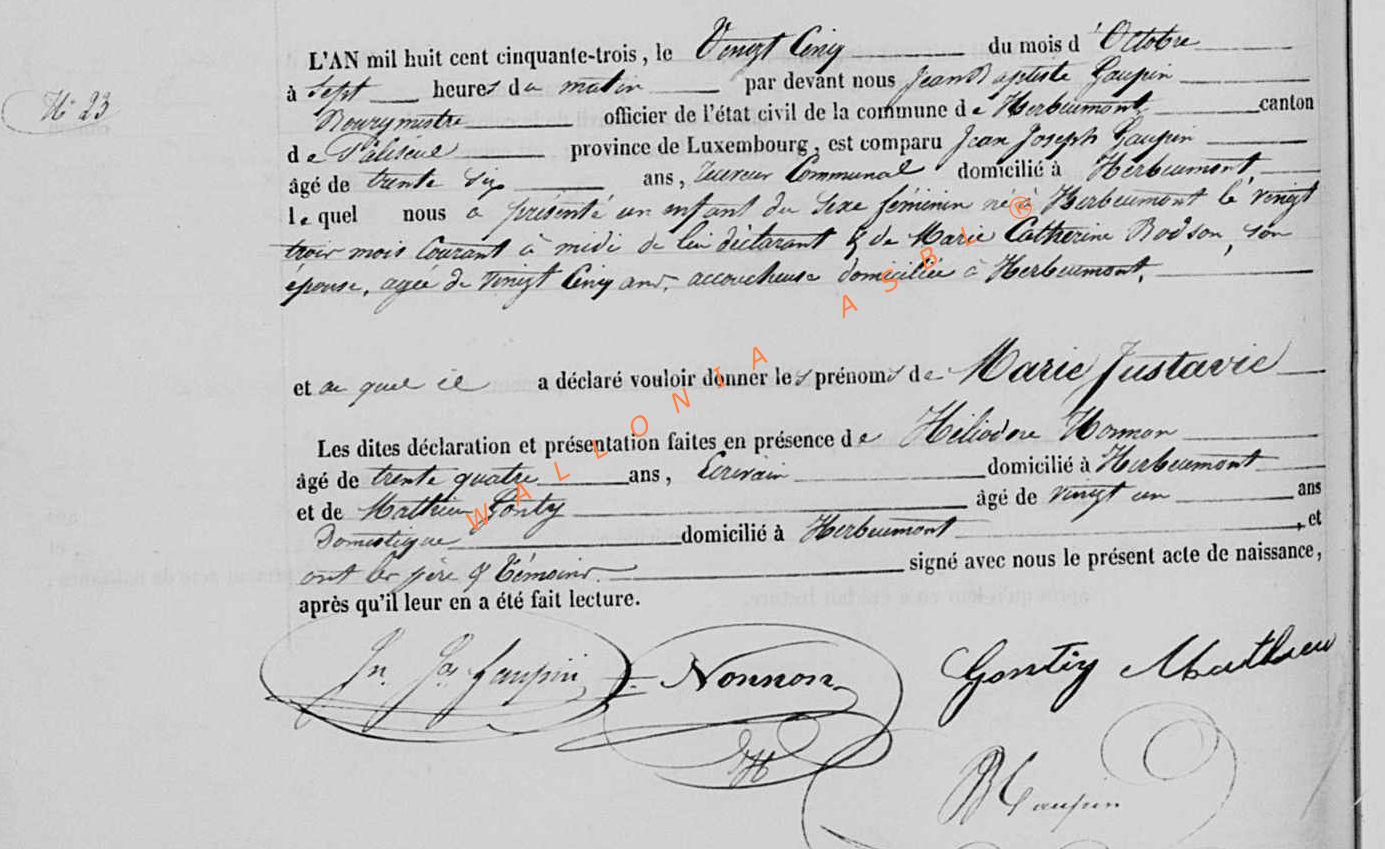 L'AN mil huit cent cinquante-trois, le Vingt Cinq du mois d'Octobre
N° 23
à Sept heures du matin par devant nous Jean Baptiste Gaupin
Bourgmestre officier de l'état civil de la commune de Herbeumont, canton
de Paliseul province de Luxembourg, est comparu Jean Joseph Gaupin
âgé de trente Six ans, Receveur Communal domicilié à Herbeumont,
lequel nous a présenté un enfant du Sexe féminin né à Herbeumont le vingt
trois mois Courant à midi de lui déclarant & de Marie Catherine Rodson, son
épouse, agée de Vingt Cinq ans, accoucheuse domiciliée à Herbeumont,
et au quel il a déclaré vouloir donner les prénoms de Marie Justavie
Les dites déclaration et présentation faites en présence de Héliodore Nonnon
âgé de trente quatre ans, Ecrivain domicilié à Herbeumont
et de Mathieu Gontÿ âgé de Vingt un ans
Domestique domicilié à Herbeumont, et
ont les père & témoins signé avec nous le présent acte de naissance,
après qu'il leur en a été fait lecture.
Jn. Jos. Gaupin Nonnon Gontÿ Mathieu
H
JB Gaupin
WALLONIA ASBL ®